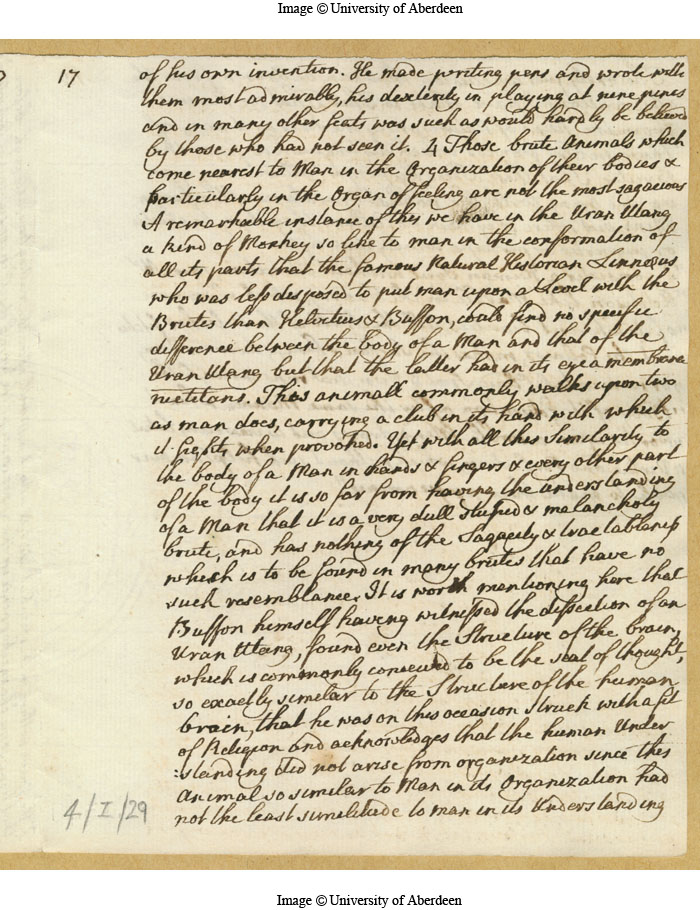 Image © University of Aberdeen
17
of his own invention. He made writing pens and wrote with
them most admirably, his dexterity in playing at nine pines
and in many other feats was such as would hardly be believed
by those who had not seen it. 4 Those brute Animals which
come nearest to Man in the Organization of their bodies &
particularly in the Organ of feeling are not the most sagacious
A remarkable instance of this we have in the Uran Utang
a kind of Monkey so like to man in the conformation of
all its parts that the famous Natural Historian Linneus
who was less desposed to put man upon a Level with the
Brutes than Helvetius & Buffon, could find no specific
difference between the body of a Man and that of the
Uran Utang but that the latter had in its eye a membrana
nictitans. This animall commonly walks upon two
as man does, carrying a club in its hand with which
it fights when provoked. Yet with all this Similarity to
the body of a Man in hands & fingers & every other part
of the body it is so far from having the understanding
of a Man that it is a very dull stupid & melancholy
brute, and has nothing of the Sagacity & tractableness
which is to be found in many brutes that have no
such resemblance. It is worth mentioning here that
Buffon himself having witnessed the dissection of an
Uran Utang, found even the Structure of the brain,
which is commonly conceived to be the seat of thought,
so exactly similar to the Structure of the human
brain, that he was on this occasion Struck with a fit
of Religion and acknowledges that the human Under
:standing did not arise from organization since this
Animal so similar to Man in its Organization had
not the least similitude to man in its Understanding
4/I/29
Image © University of Aberdeen